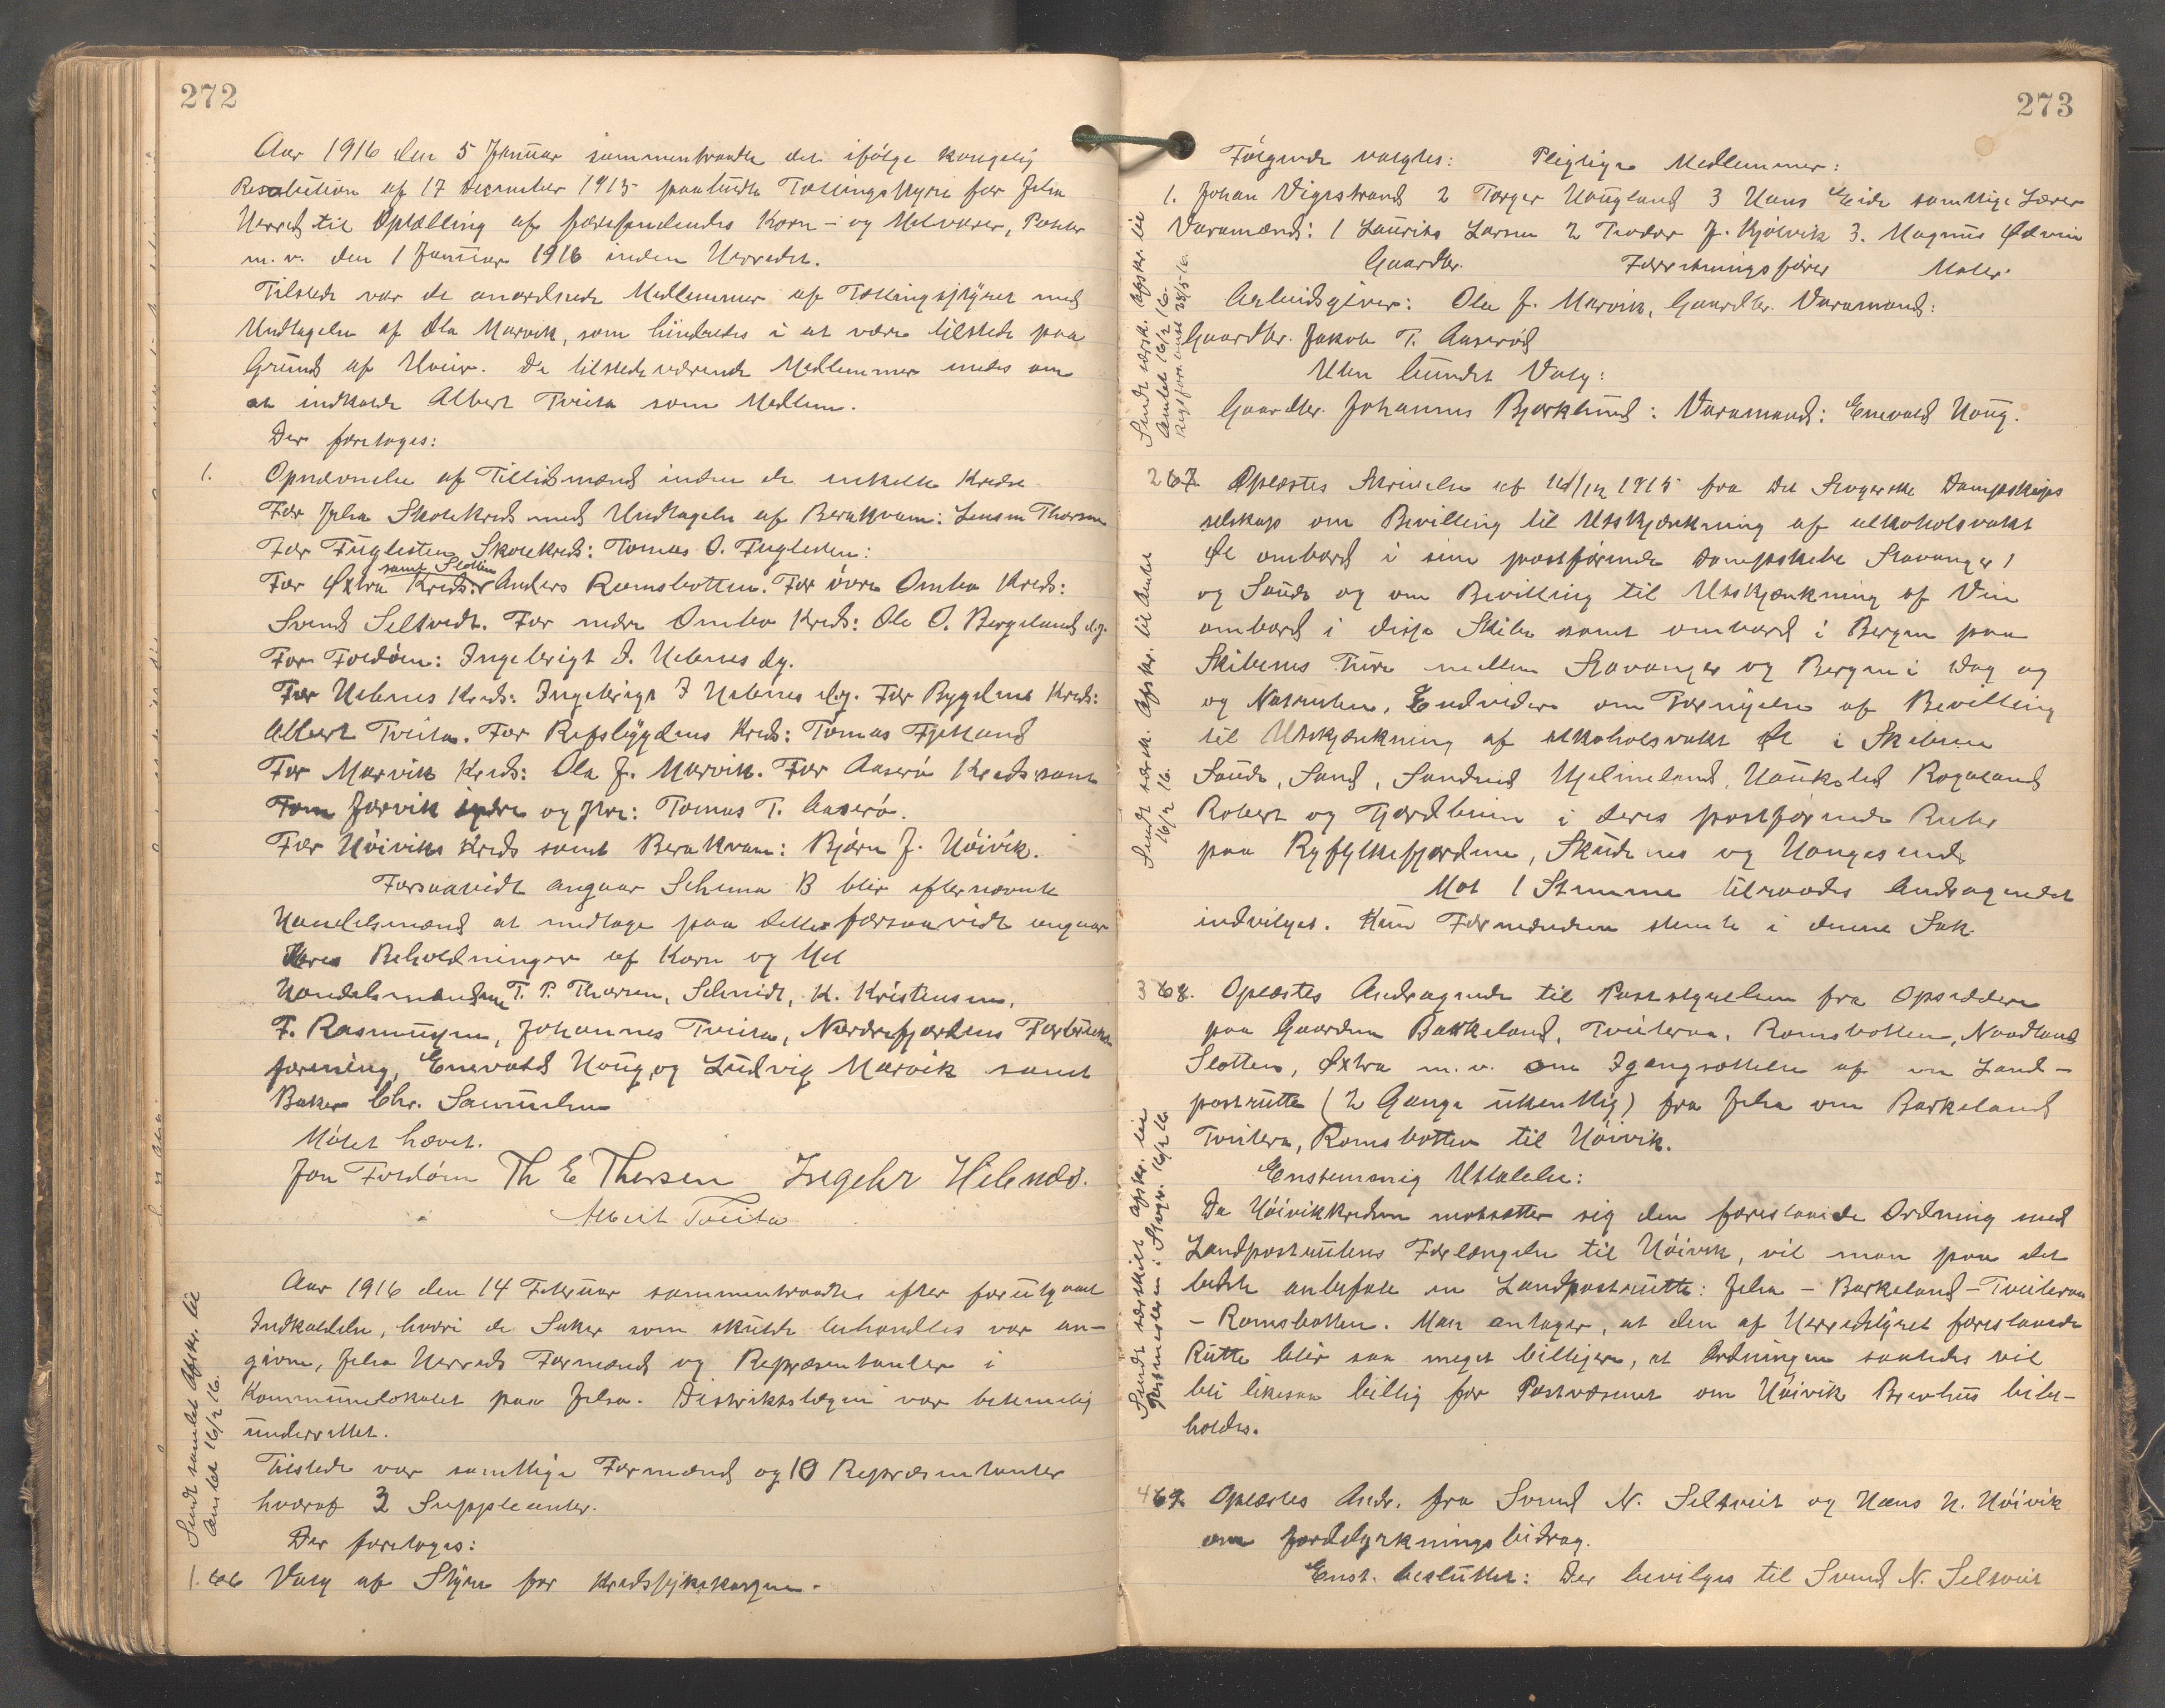 272
Aar 1916 den 5 Januar sammentraadte det ifølge kongelig
Resolution af 17 December 1915 paabudte Tællingsstyre for Jelsa
Herred til Optælling af forefindendes Korn- og Melvarer, Poteter
m.v. den 1 Januar 1916 inden Herredet.
Tilstede var de anordnede Medlemmer af Tællingsstyret med
Undtagelse af Ola Marvik, som hindredes i at være tilstede paa
Grund af Uveir. De tilstedeværende Medlemmer enedes om
at indkalde Albert Tveita som Medlem.
Der foretoges:
1. Opnævnelse af Tillidsmænd inden de enkelte Kredse
For Jelsa Skolekreds med Undtagelse af Berakvam: Lensm Thorsen
For Fuglesten Skolekreds: Tomas O. Fuglesten:
samt Slotten
For Østra Kreds: Anders Ramsbotten. For øvre Ombo Kreds:
Svend Seltvedt. For nedre Ombo Kreds: Ole O. Bergeland d.y.
For Foldøen: Ingebrigt I. Helenes dy.
For Hebnes Kreds: Ingebrigt I Hebnes d.y. For Bygdens Kreds:
Albert Tveita. For Refsbygdens Kreds: Tomas Fjetland
For Marvik Kreds: Ola J. Marvik. For Aaserø Kreds samt
Jørvik indre og ytre: Tomas T. Aaserø.
For Høiviks Kreds samt Berakvam: Bjørn J. Høivik.
Forsaavidt angaar Schema B blir efternævnte
Handelsmænd at medtage paa dette forsaavidt angaar
deres Beholdninger af Korn og Mel
Handelsmændene T. P. Thorsen, Schmidt, K. Kristensen,
F. Rasmussen, Johannes Tveita, Nordrefjordens Forbruks
forening, Enevald Haug, og Ludvig Marvik samt
Baker Chr. Samuelsen
Møtet hævet.
Jon Foldøen Th E Thorsen Ingebr Hebnes.
Albert Tveita
Sendt samlet Afskr. til
Amtet 16/2 16.
Aar 1916 den 14 Februar sammentraadte efter forutgaat
Indkaldelse, hvori de Saker som skulde behandles var an-
givne, Jelsa Herreds Formænd og Repræsentanter i
Kommunelokalet paa Jelsa. Distriktslægen var betimelig
underrettet.
Tilstede var samtlige Formænd og 10 Repræsentanter
hvoraf 3 Suppleanter.
Der foretoges:
1. 66 Valg af Styre for Kredssykekassen.
273
Følgende valgtes: Pligtige Medlemmer:
1. Johan Vigestrand 2 Torger Haugland 3 Hans Eide samtlige Lærer
Varamænd: 1 Laurits Larsen 2 Teodor J. Kjølvik 3. Magnus Ødvin
Gaardbr. Forretningsfører Maler.
Arbeidsgiver: Ola J. Marvik, Gaardbr. Varamand:
Gaardbr. Jakob T. Aaserød
Uten bundet Valg:
Gaardbr. Johannes Bjørklund: Varamand: Enevald Haug.
Sendt særsk. Afskr. til
Amtet 16/2 16.
2 67. Oplæstes Skrivelse af 1915 fra Det Stavangerske Dampskibs
selskap om Bevilling til Utskjænkning af alkoholsvakt
Øl ombord i sine postførende Dampskibe Stavanger 1
og Sauda og om Bevilling til Utskjænkning af Vin
ombord i disse Skibe samt ombord i Bergen paa
Skibenes Ture mellem Stavanger og Bergen i Dag og
og Natruten. Endvidere om Fornyelse af Bevilling
til Utskjænkning af alkoholsvakt Øl i Skibene
Sauda, Sand, Sandeid Hjelmeland, Haukelid Rogaland
Robert og Fjordbuen i deres postførende Ruter
paa Ryfylkefjordene, Skudenes og Haugesund
Mot 1 Stemme tilraades Andragendet
indvilget. Kun Formændene stemte i denne Sak
Sendt særsk. Afskr. til Amtet
16/2 16.
3 68. Oplæstes Andragende til Poststyrelsen fra Opsiddere
paa Gaardene Barkeland, Tveiteraa, Ramsbotten, Nordland
Slotten, Østra m.v. om Igangsættelse af en Land-
postrutte (2 Gange ukentlig) fra Jelsa om Barkeland
Tveitera, Ramsbotten til Høivik.
Enstemmig Uttalelse:
Da Høivikkredsen motsætter sig den foreslaaede Ordning med
Landpostrutens Forlængelse til Høivik, vil man paa det
bedste anbefale en Landpostrutte: Jelsa - Barkeland - Tveiteraa
- Ramsbotten. Man antager, at den af Herredstyret foreslaaede
Rutte blir saa meget billigere, at Ordningen saaledes vil
bli likesaa billig for Postvæsenet om Høivik Brevhus bibe-
holdes.
Sendt særskilt Afskr. til
Postmesteren i Stavgr. 16/2 16.
4 69. Oplæstes Andr. fra Svend N. Seltveit og Hans H. Høivik
om jorddyrkningsbidrag.
Enst. besluttet: Der bevilges til Svend N. Seltveit